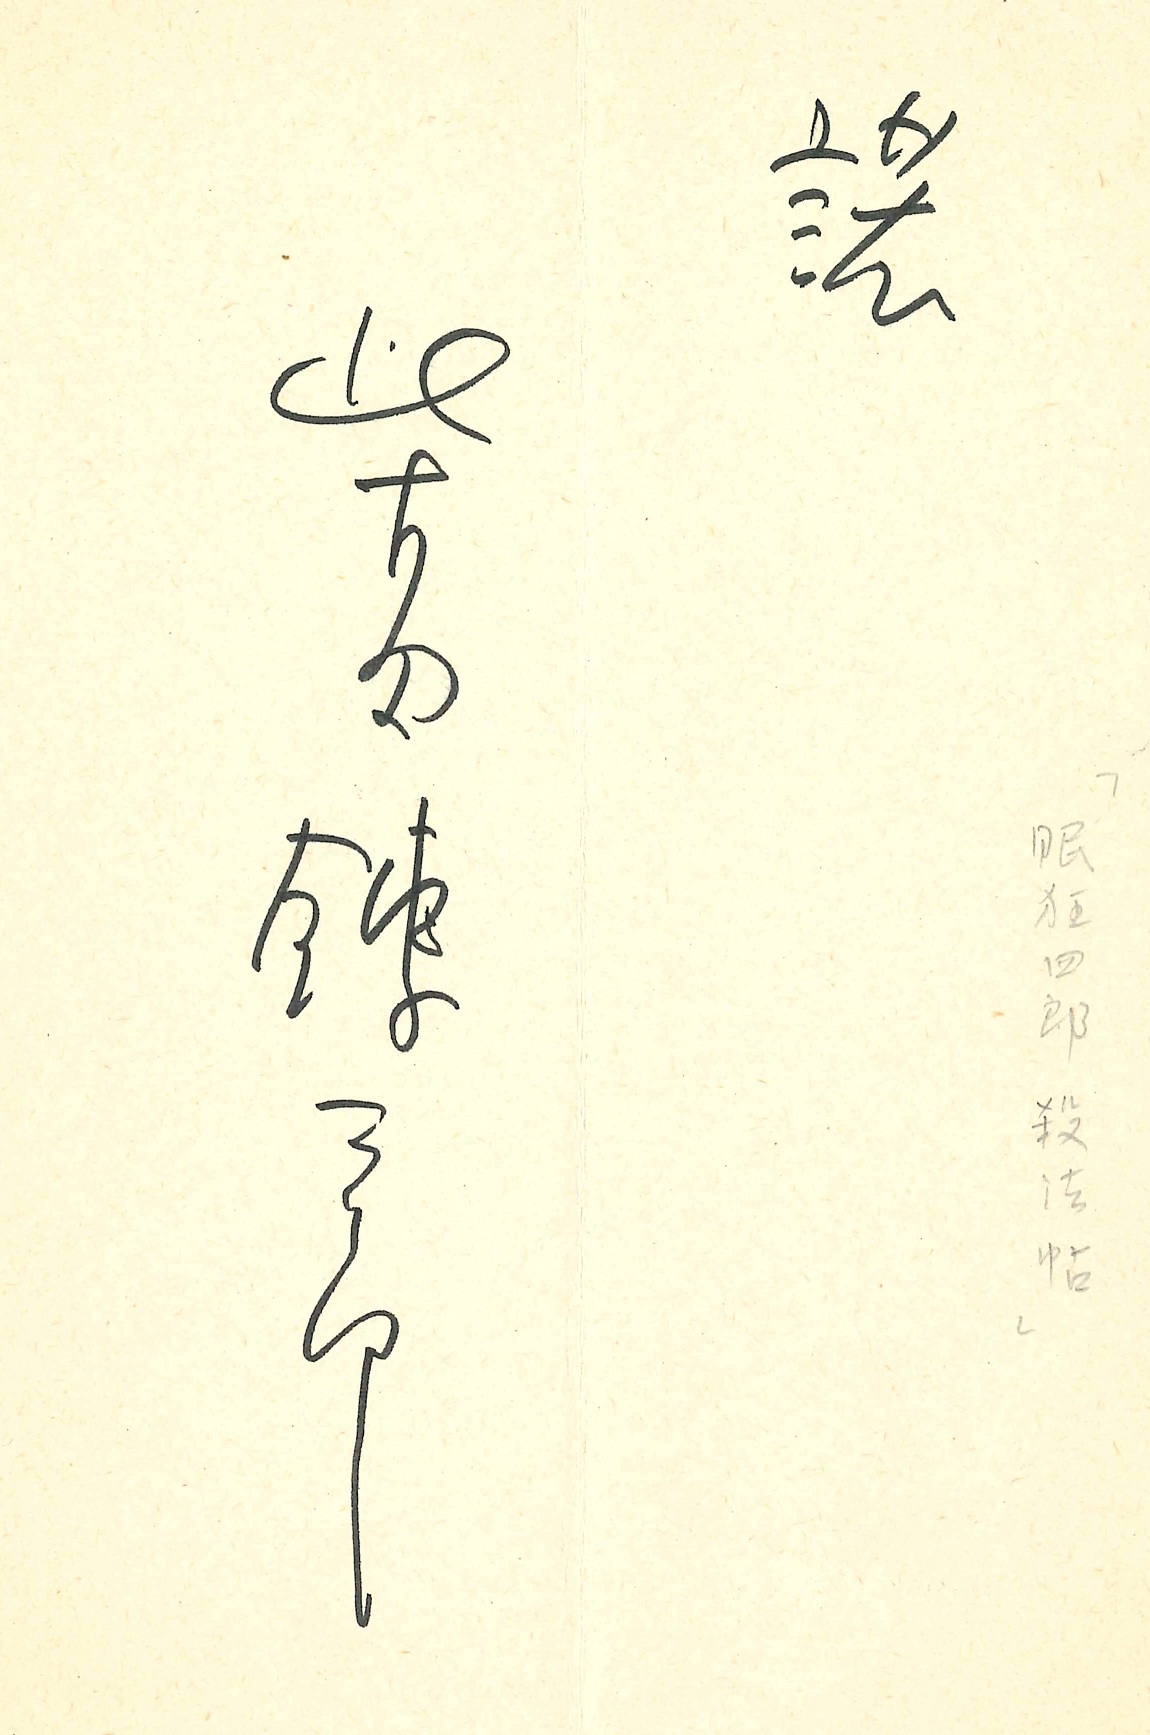 「眠狂四郎 殺法帖」
柴田錬三郎